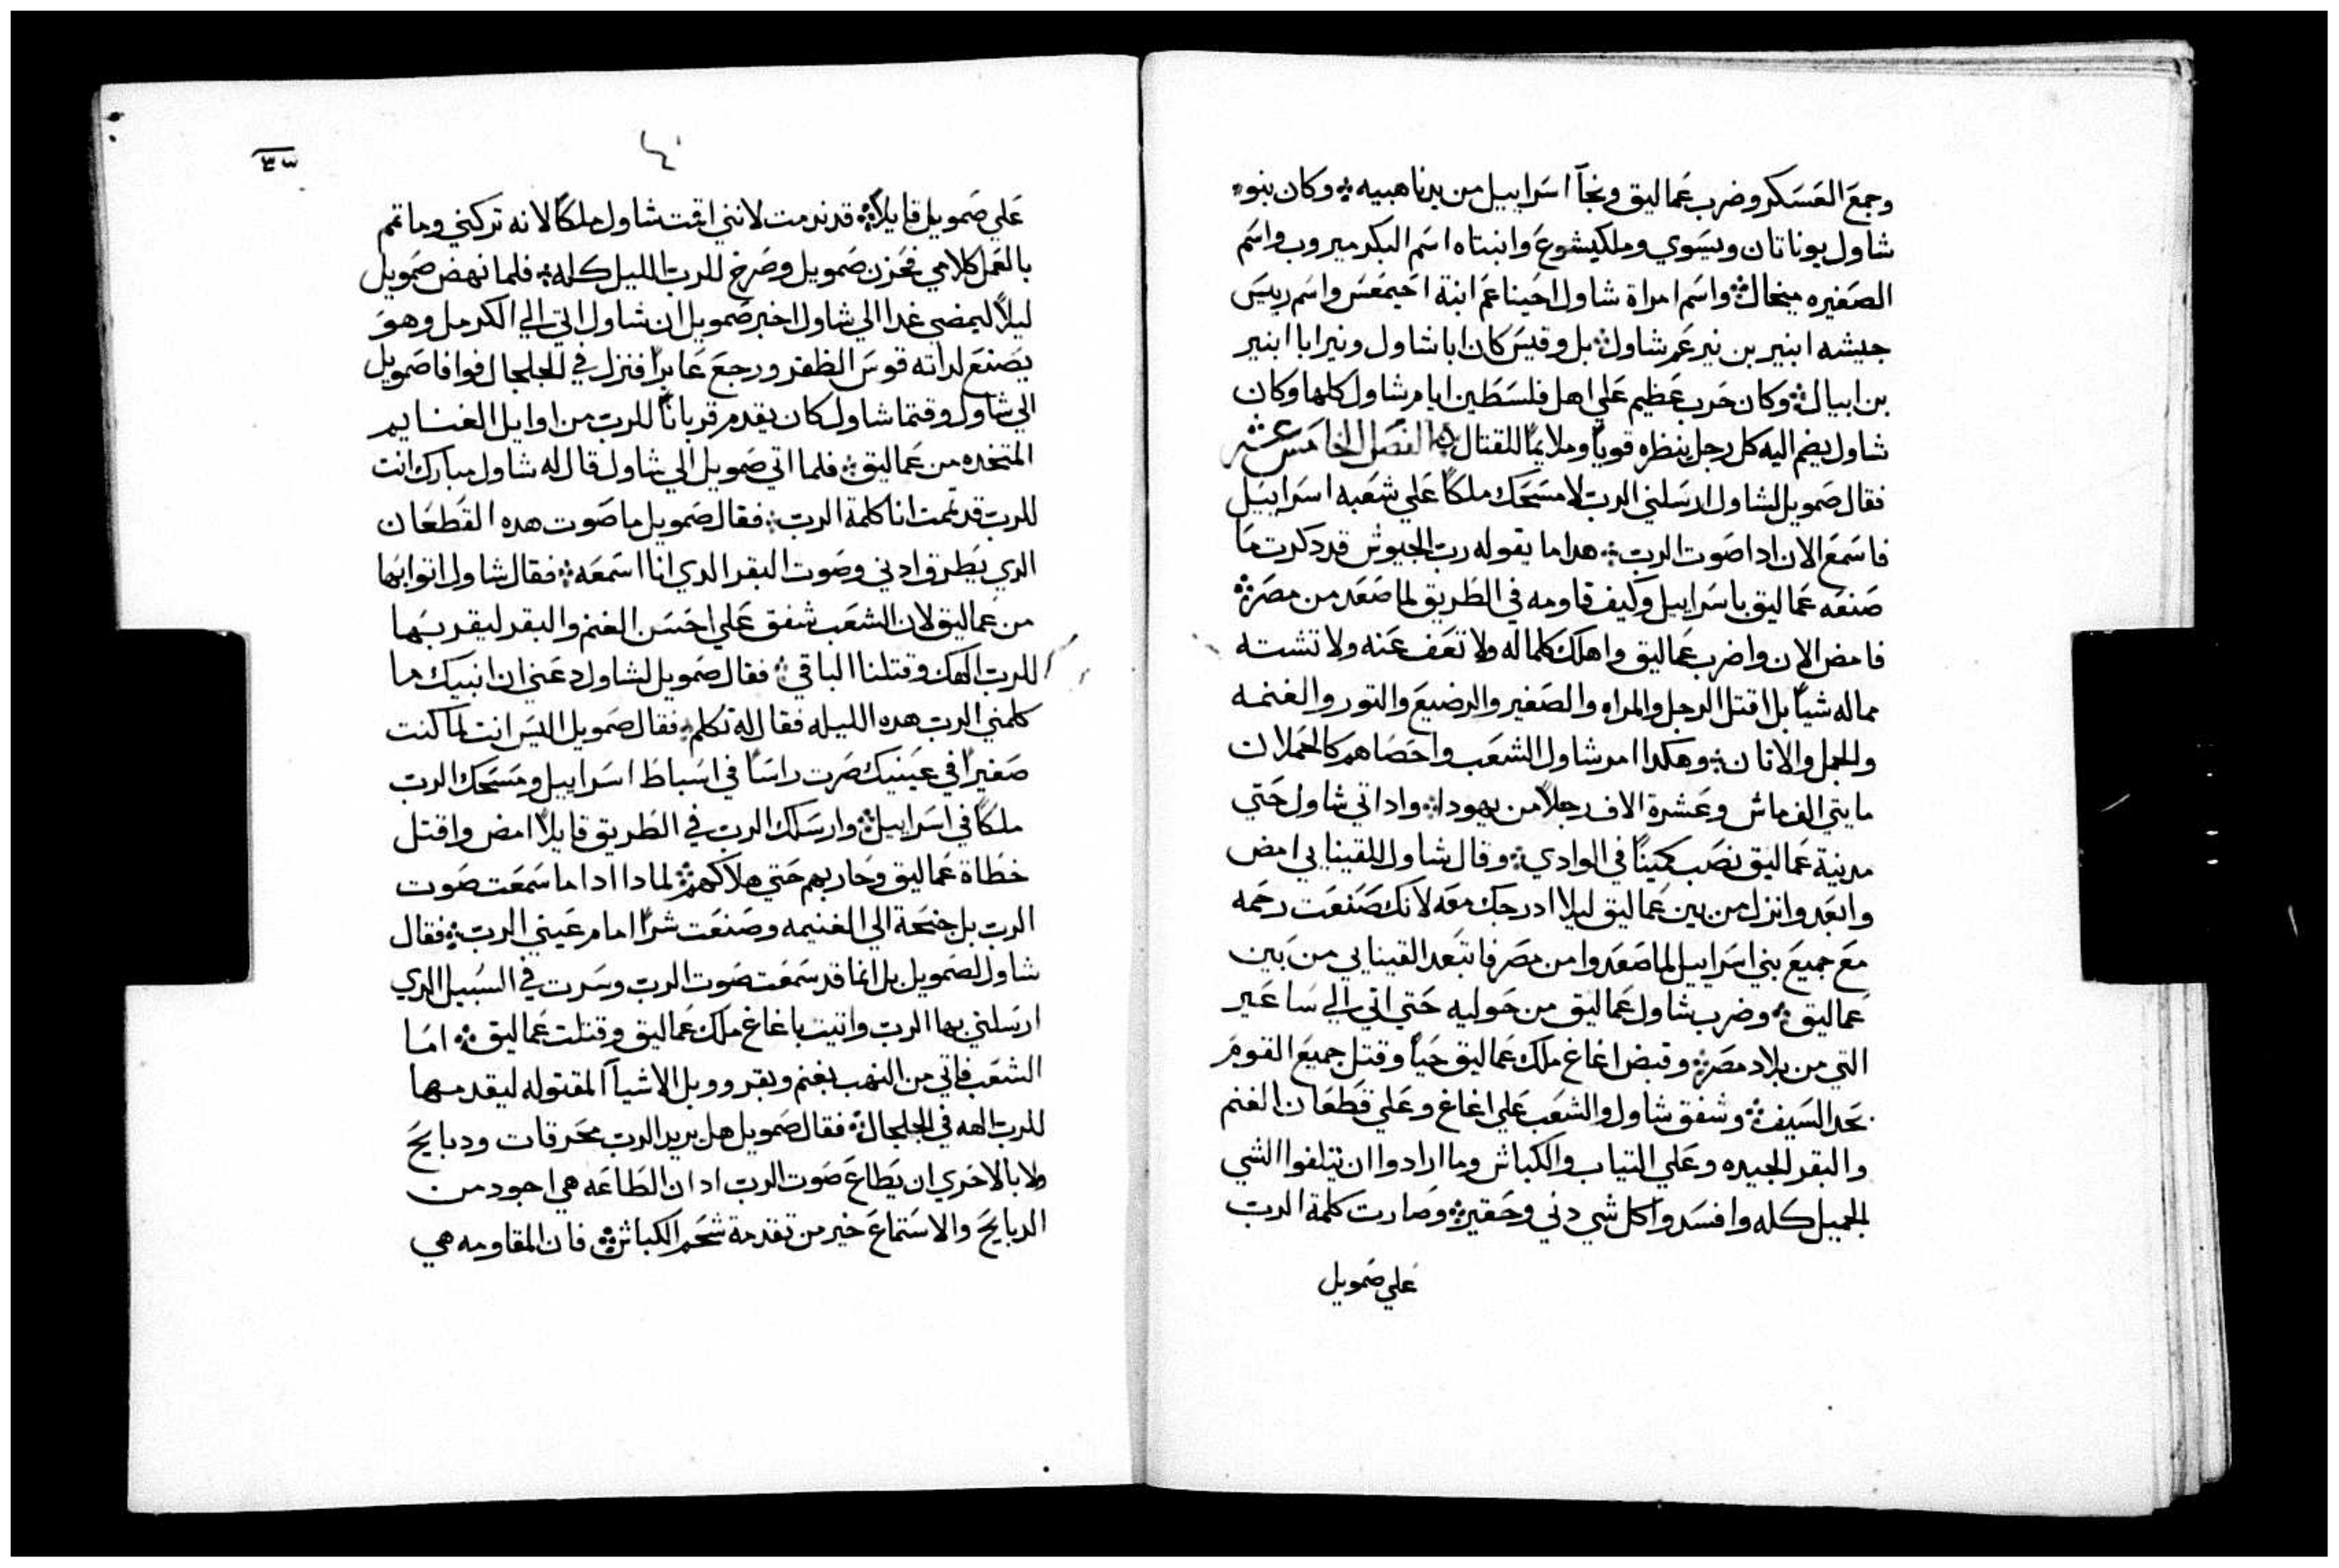 وجمع العسكر وضرب عماليق ونجا اسراييل من يد ناهبيه ؞ وكان بنو
شاول يوناتان ويسوي وملكيشوع وابنتاه اسم البكر ميروب واسم
الصغيره ميخال ؞ واسم امراة شاول احيناعم ابنة احيمعس واسم رييس
جيشه ابنير بن نير عم شاول ؞ بل وقيس كان ابا شاول ونير ابا ابنير
بن ابيال ؞ وكان حرب عظيم علي اهل فلسطين ايام شاول كلها وكان
شاول يضم اليه كل رجل ينظره قوياً وملايماً للقتال ؞ الفصل الخامس عشر
فقال صمويل لشاول ارسلني الرب لامسحك ملكاً علي شعبه اسراييل
فاسمع الان ادا صوت الرب ؞ هدا ما يقوله رب الجيوش قد دكرت ما
صنعه عماليق باسراييل وكيف قاومه في الطريق لما صعد من مصر ؞
فامض الان واضرب عماليق واهلك كلما له ولا تعف عنه ولا تشته
مماله شياً بل اقتل الرجل والمراه والصغير والرضيع والتور والغنمه
والجمل والاتان ؞ وهكدا امر شاول الشعب واحصاهم كالحملان
مايتي الف ماش وعشرة الاف رجلاً من يهودا ؞ وادا اتي شاول حتي
مدينة عماليق نصب كميناً في الوادي ؞ وقال شاول للقينايي امض
وابعد وانزل من بين عماليق ليلا ادرجك معه لانك صنعت رحمه
مع جميع بني اسراييل لما صعدوا من مصر فابتعد القينايي من بين
عماليق ؞ وضرب شاول عماليق من حوليه حتي اتي الي ساعير
التي من بلاد مصر ؞ وقبض اغاغ ملك عماليق حياً وقتل جميع القوم
بحد السيف ؞ وشفق شاول والشعب علي اغاغ وعلي قطعان الغنم
والبقر الجيده وعلي التياب والكباش وما ارادوا ان يتلفوا الشي
الجميل كله وافسدوا كل شي دني وحقير ؞ وصارت كلمة الرب
علي صمويل
٤٣
علي صمويل قايلاً ؞ قد ندمت لانني اقمت شاول ملكاً لانه تركني وما تمم
بالعمل كلامي فحزن صمويل وصرخ للرب الليل كله ؞ فلما نهض صمويل
ليلاً ليمضي غدا الي شاول اخبر صمويل ان شاول اتي الي الكرمل وهو
يصنع لداته قوس الظفر ورجع عابراً فنزل في الجلجال فوافا صمويل
الي شاول وقتما شاول كان يقدم قرباناً للرب من اوايل الغنايم
المتخده من عماليق ؞ فلما اتي صمويل الي شاول قال له شاول مبارك انت
للرب قد تممت انا كلمة الرب ؞ فقال صمويل ما صوت هده القطعان
الدي يطرق ادني وصوت البقر الدي انا اسمعه ؞ فقال شاول اتوا بها
من عماليق لان الشعب شفق علي احسن الغنم والبقر ليقربها
للرب الهك وقتلنا الباقي ؞ فقال صمويل لشاول دعني ان انبيك ما
كلمني الرب هده الليله فقال له تكلم ؞ فقال صمويل اليس انت لما كنت
صغيراً في عينيك صرت راساً في اسباط اسراييل ومسحك الرب
ملكاً في اسراييل ؞ وارسلك الرب في الطريق قايلاً امض واقتل
خطاة عماليق وحاربهم حتي هلاكهم ؞ لمادا ادا ما سمعت صوت
الرب بل جنحة الي الغنيمه وصنعت شراً امام عيني الرب ؞ فقال
شاول لصمويل بل انما قد سمعت صوت الرب وسرت في السبيل الدي
ارسلني بها الرب واتيت باغاغ ملك عماليق وقتلت عماليق ؞ اما
الشعب فاتي من النهب بغنم وبقر ووبل الاشيآ المقتوله ليقدمها
للرب الهه في الجلجال ؞ فقال صمويل هل يريد الرب محرقات ودبايح
ولا بالاحري ان يطاع صوت الرب اد ان الطاعه هي اجود من
الدبايح والاستماع خير من تقدمة شحم الكباش ؞ فان المقاومه هي